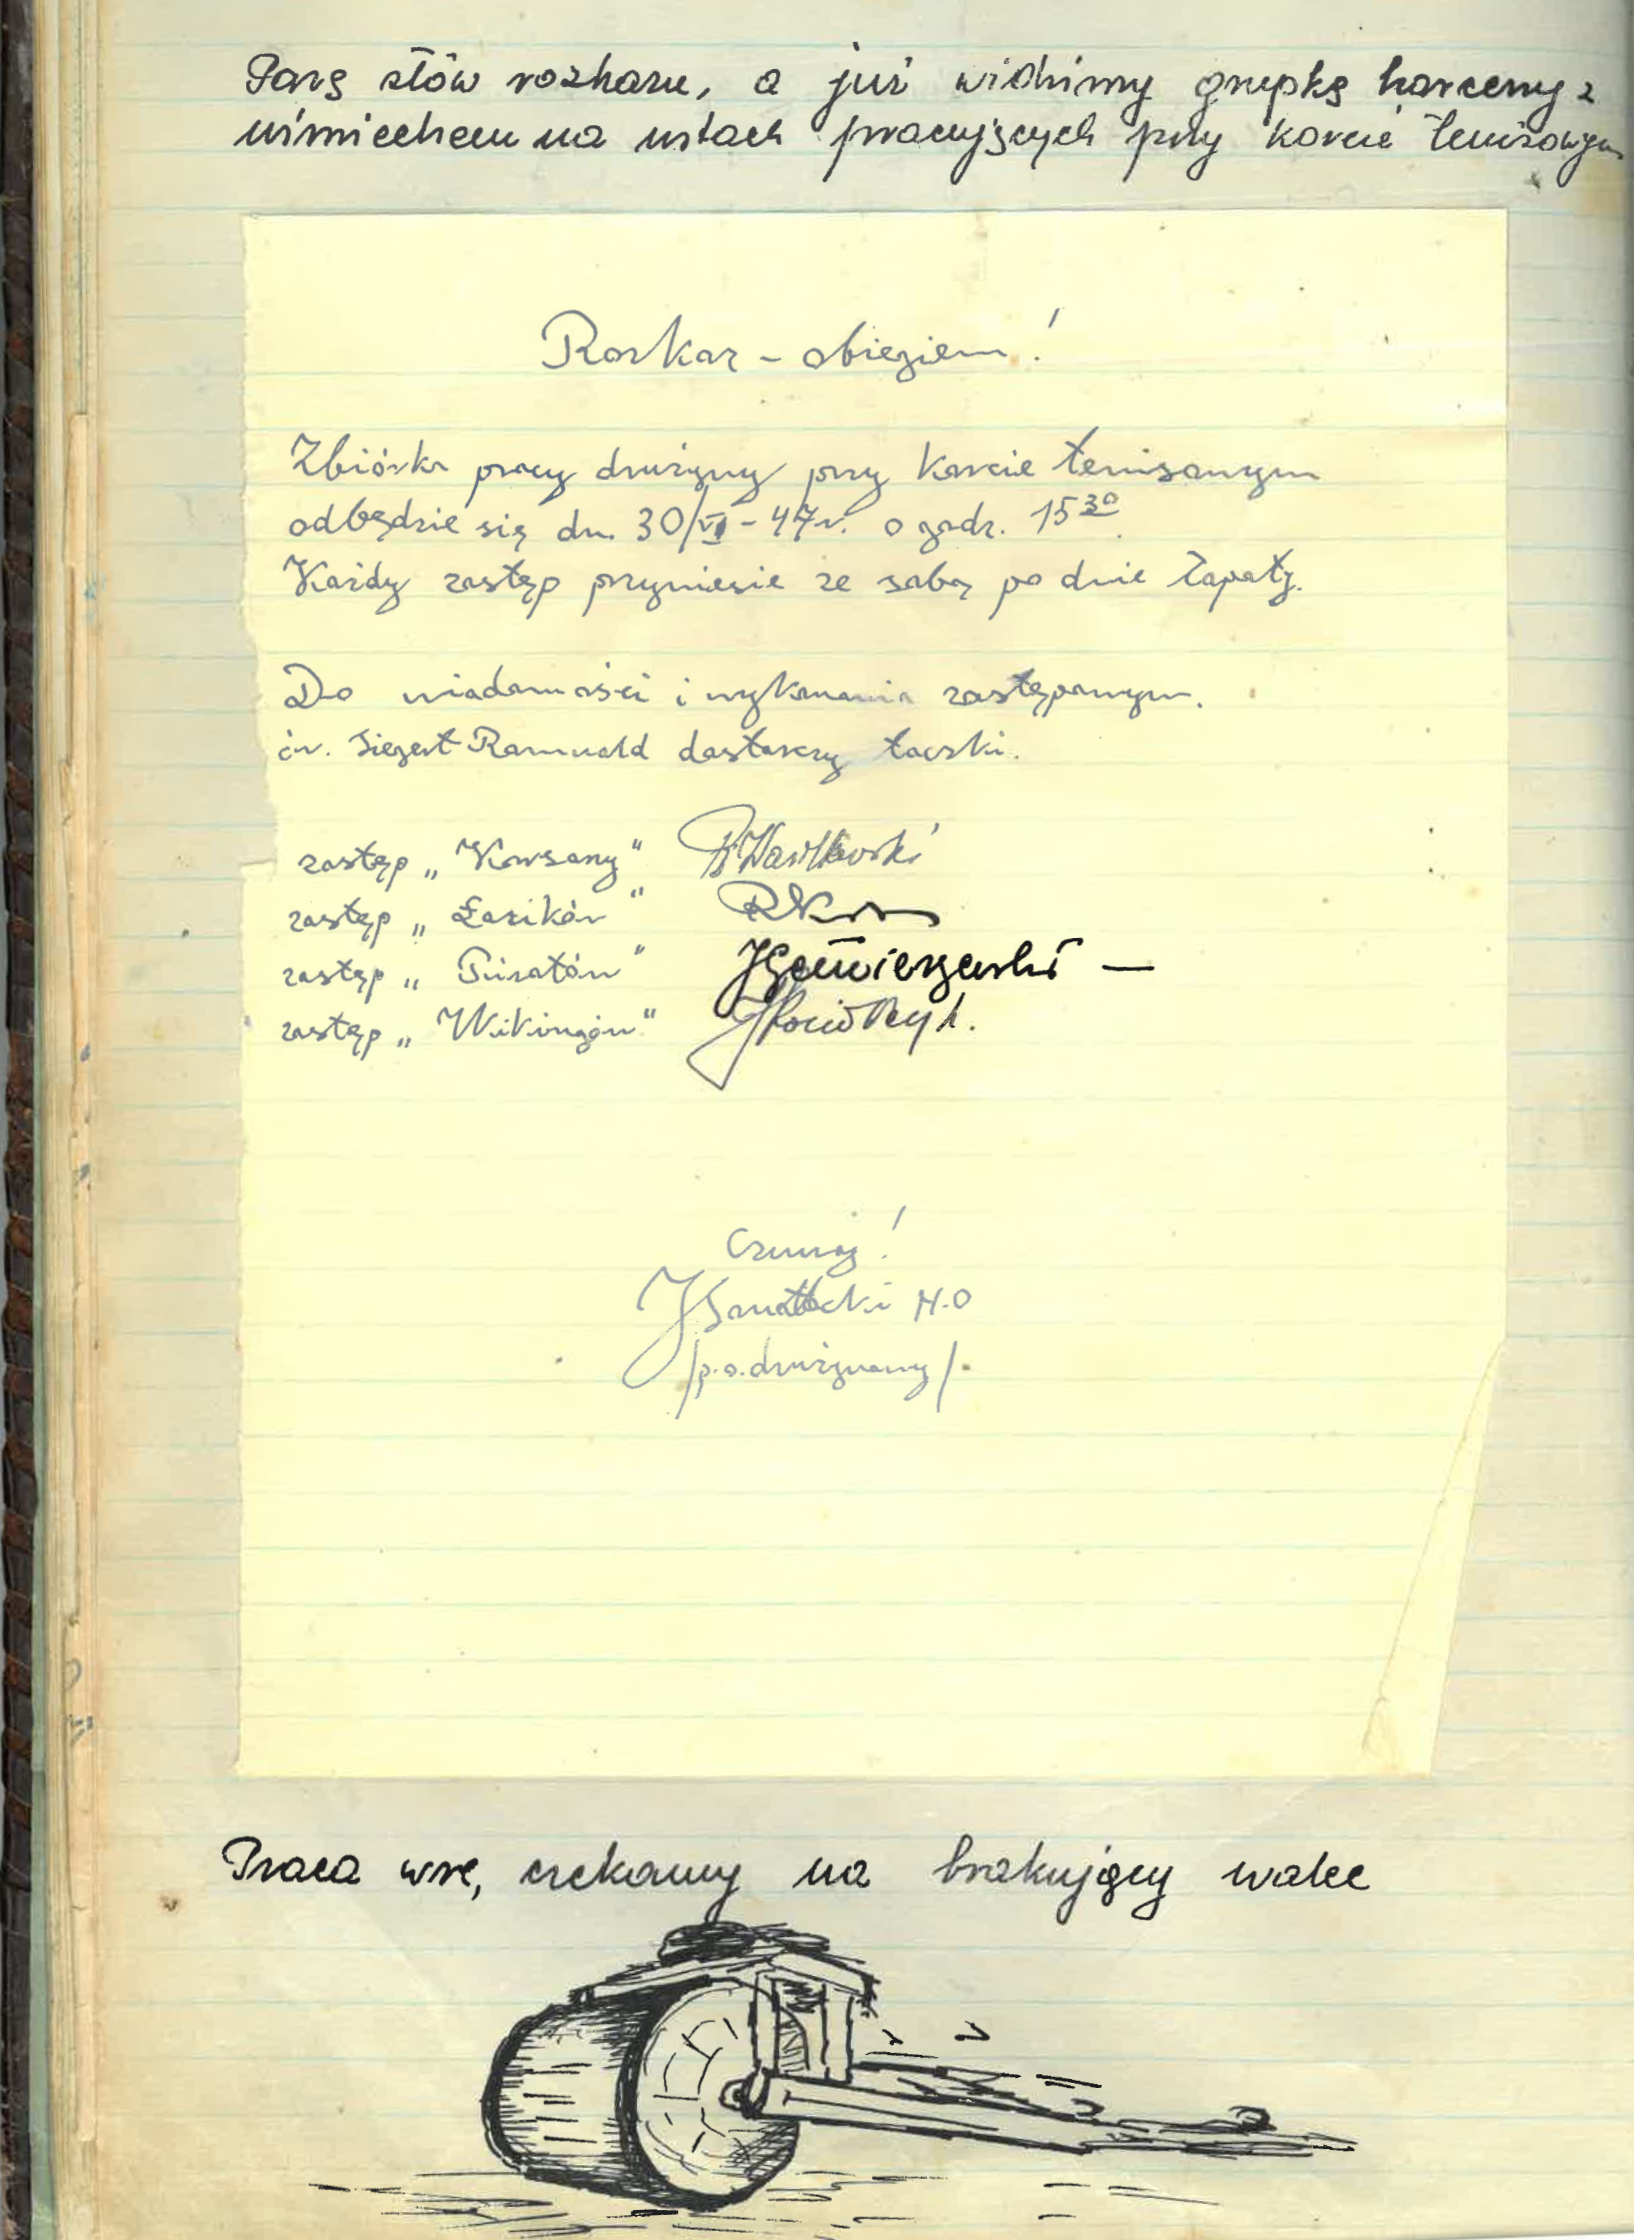 Parę słów rozkazu, a już widzimy grupkę harcerzy z
uśmiechem na ustach pracujących przy korcie tenisowym
Rozkaz - obiegiem!
Zbiórka pracy drużyny przy korcie tenisowym
odbędzie się dn. 30/VI - 47 r. o godz. 15 30
Każdy zastęp przyniesie ze sobą po dwie łopaty.
Do wiadomości i wykonania zastępowym.
ćw. Siegert Romuald dostarczy taczki.
zastęp „Korsarzy"
zastęp „Łazików"
zastęp „Piratów"
zastęp „Wikingów"
Czuwaj!
H.O
/p.o. drużynowy/.
Praca wre, czekamy na brakujący walec